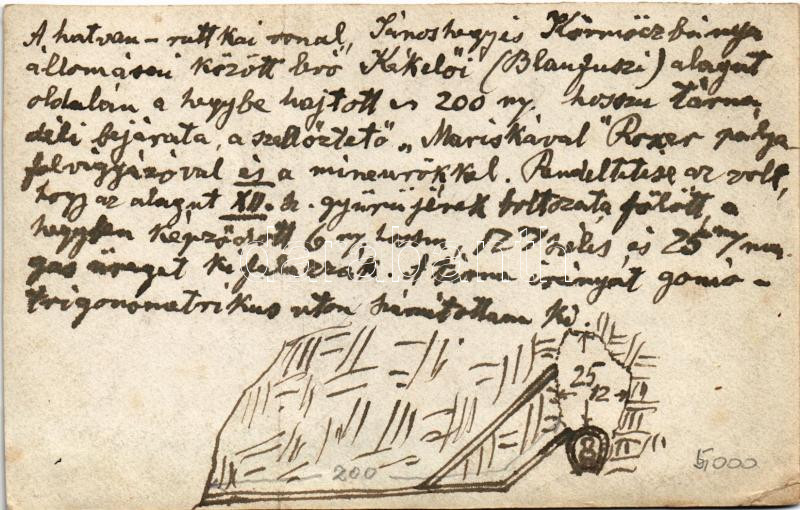 A hatvan-ruttkai vonal, Jánoshegy és Körmöczbánya
állomásai között levő Kékelői (Blaufuszi) alagut
oldalán a hegybe hajtott ∾ 200 ny. hosszu tárna
déli bejárata, a szellőztető „Mariskával" Roxer pálya-
felvigyázóval és a mineurökkel. Rendeltetése az volt,
hogy az alagut XII. sz. gyürüjének boltozata fölött a
hegyben képződött 6 ny hosszu, 12 ny széles és 25 ny ma-
gas üreget kifalazzák. A tárna irányát gonio-
trigonometrikus uton számitottam ki.
25
12
8
200
5000
darabanth